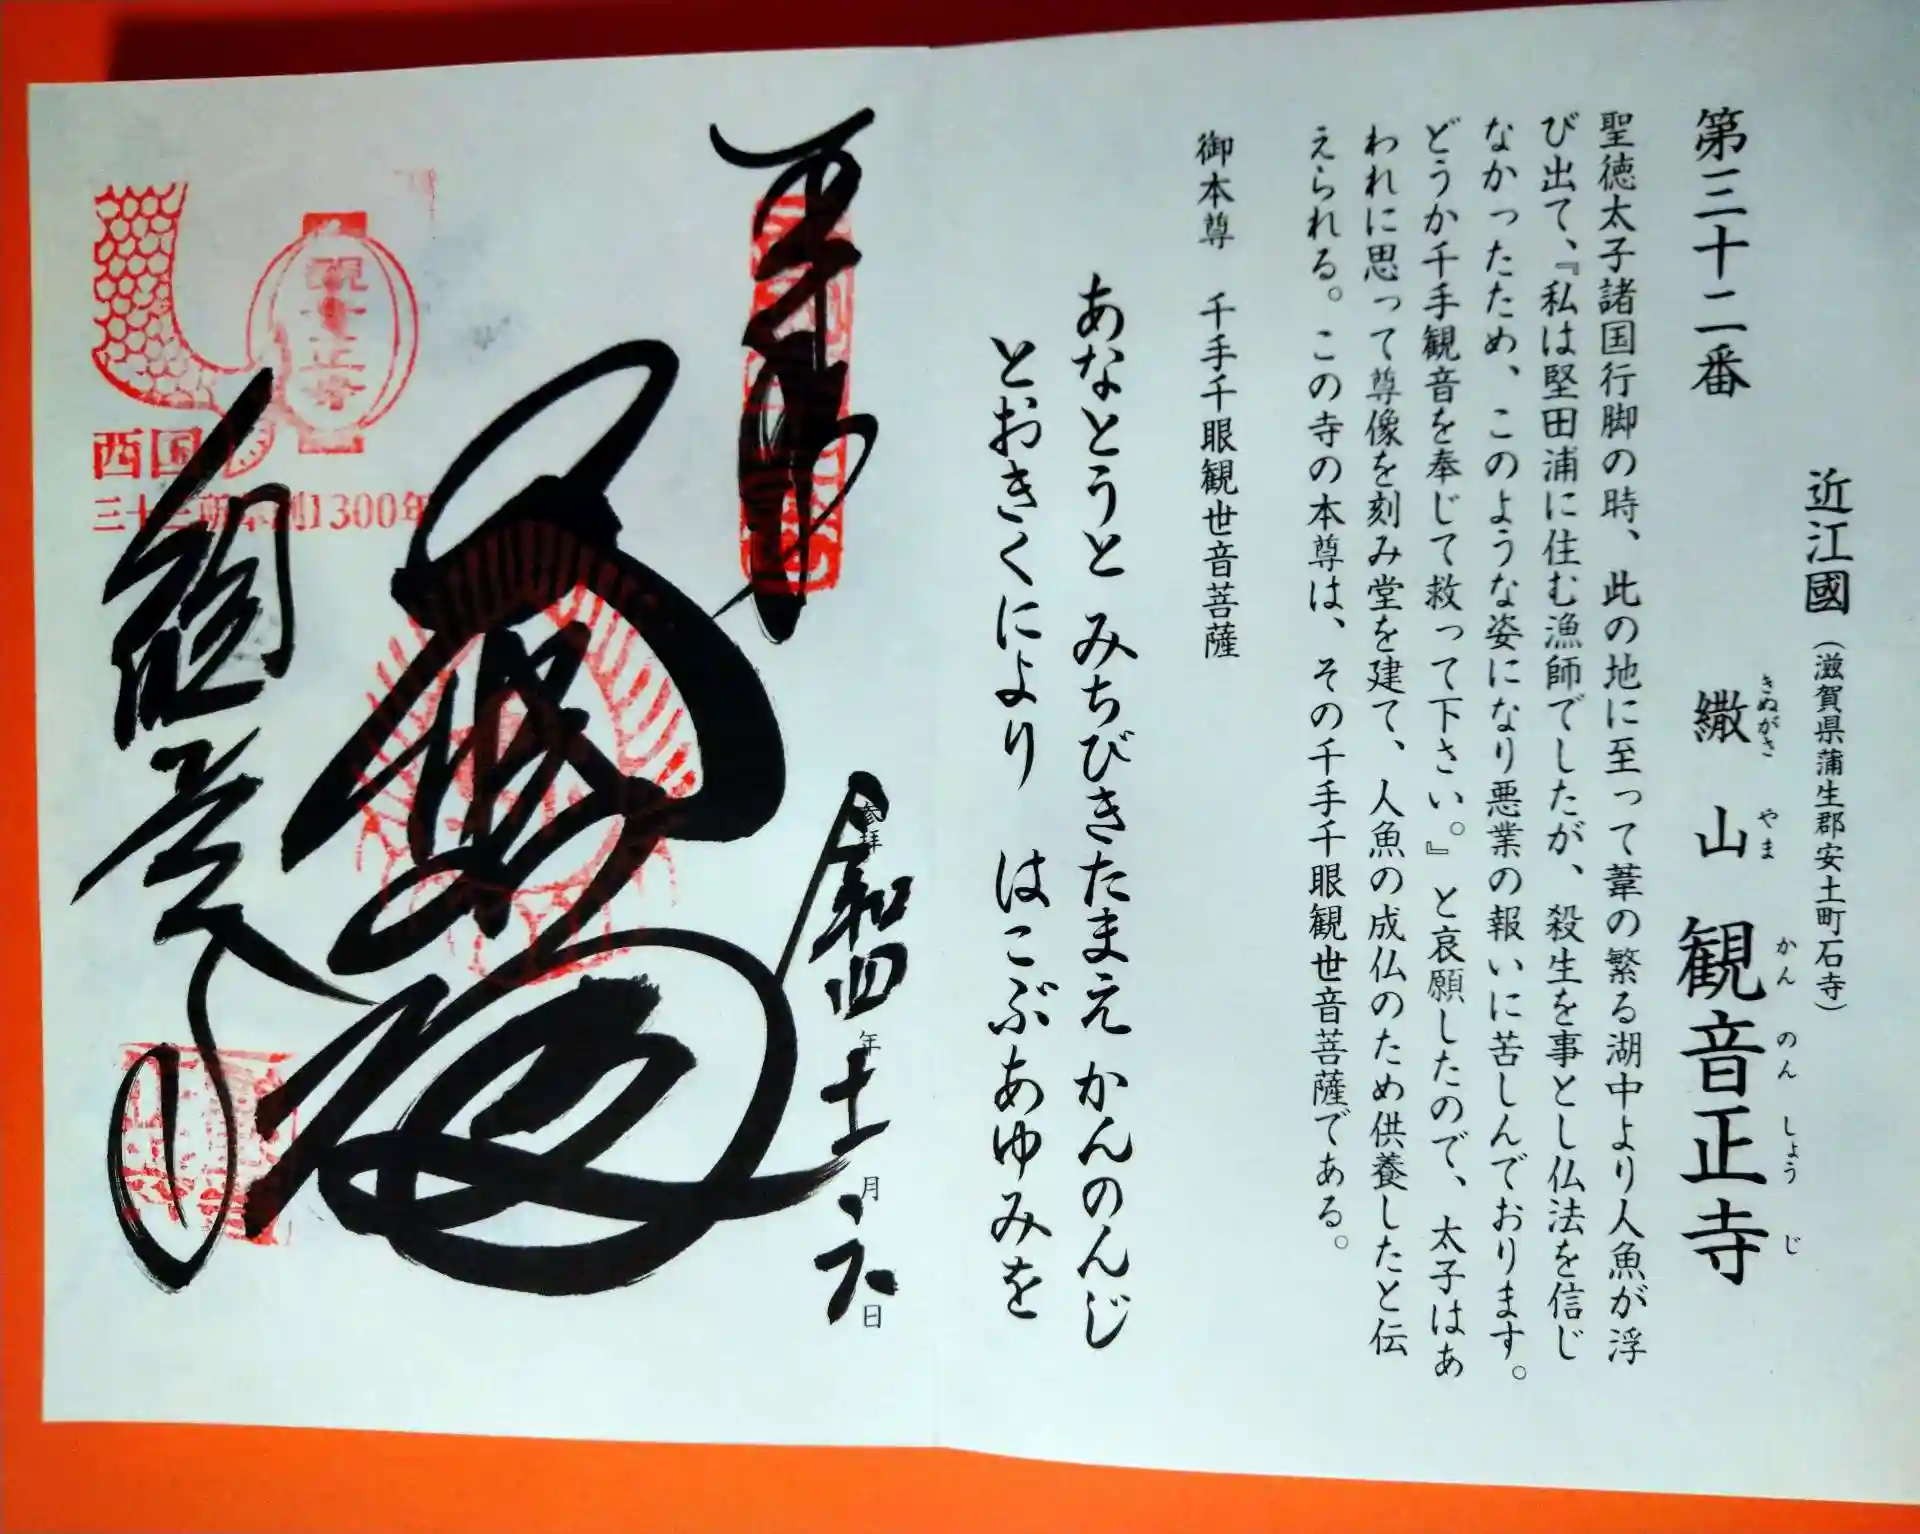 近江國（滋賀県蒲生郡安土町石寺）
第三十二番 繖山 観音正寺
きぬがさ やま かん のん しょう じ
聖徳太子諸国行脚の時、此の地に至って葦の繁る湖中より人魚が浮
び出て、『私は堅田浦に住む漁師でしたが、殺生を事とし仏法を信じ
なかったため、このような姿になり悪業の報いに苦しんでおります。
どうか千手観音を奉じて救って下さい。』と哀願したので、太子はあ
われに思って尊像を刻み堂を建て、人魚の成仏のため供養したと伝
えられる。この寺の本尊は、その千手千眼観世音菩薩である。
御本尊 千手千眼観世音菩薩
あなとうと みちびきたまえ かんのんじ
とおきくにより はこぶあゆみを
奉拝
参拝 令和四年十一月六日
観音正寺
西国
三十三所草創1300年